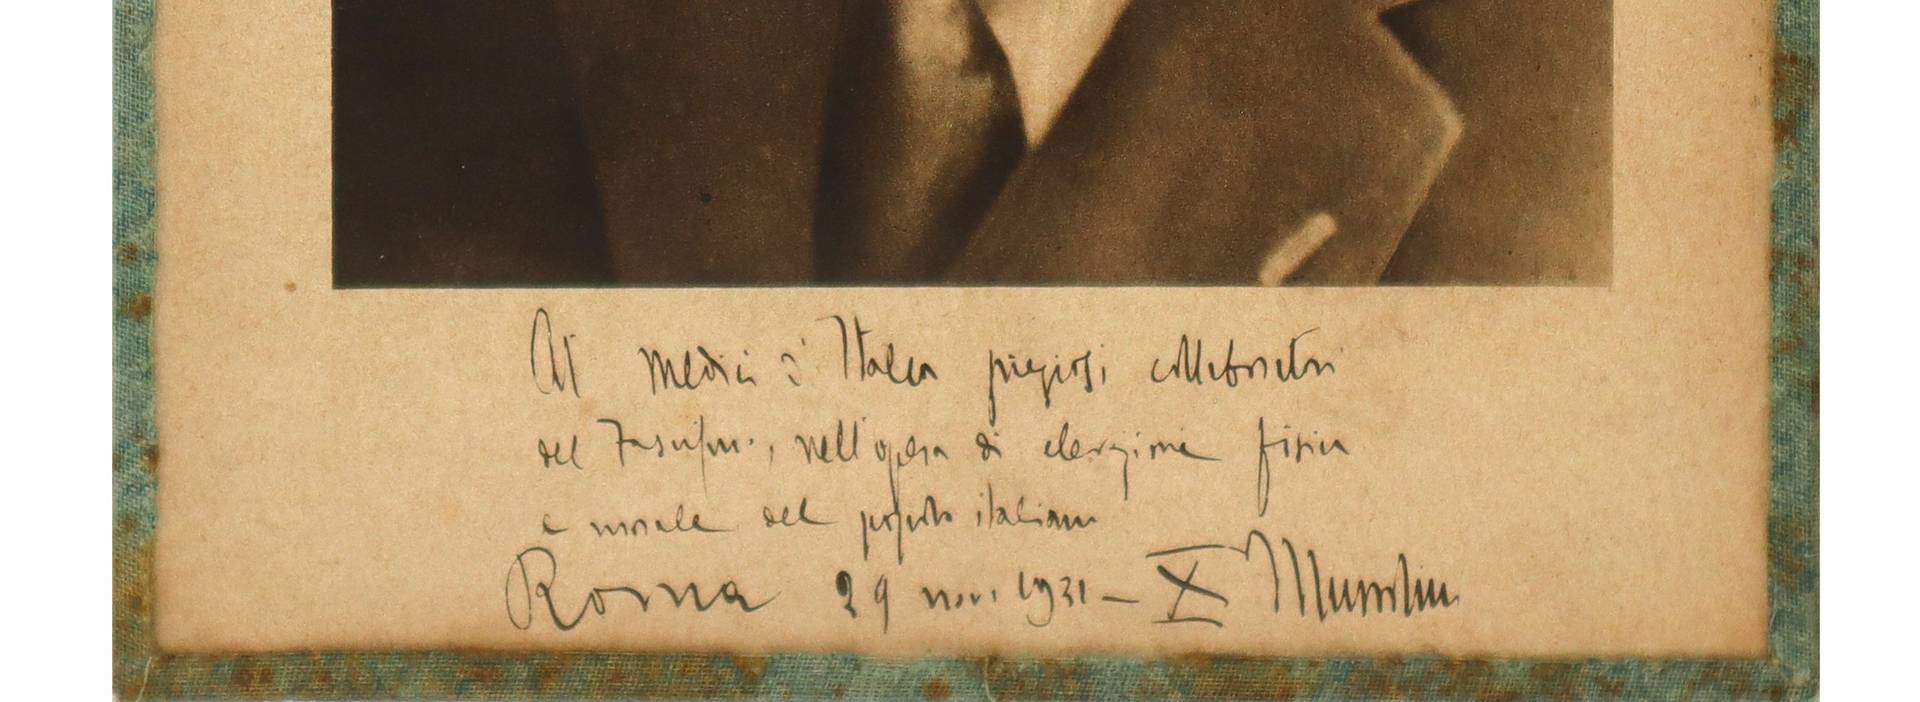 Ai medici d'Italia preziosi collaboratori
del Fascismo, nell'opera di elevazione fisica
e morale del popolo italiano
Roma 29 nov. 1931 - X Mussolini